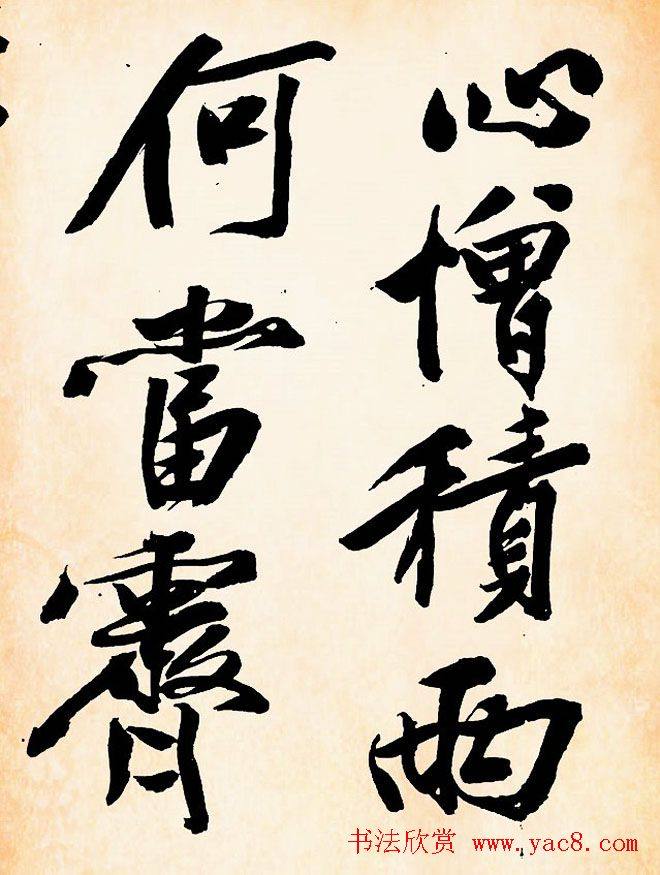 心憎積雨
何當霽
书法欣赏 www.yac8.com